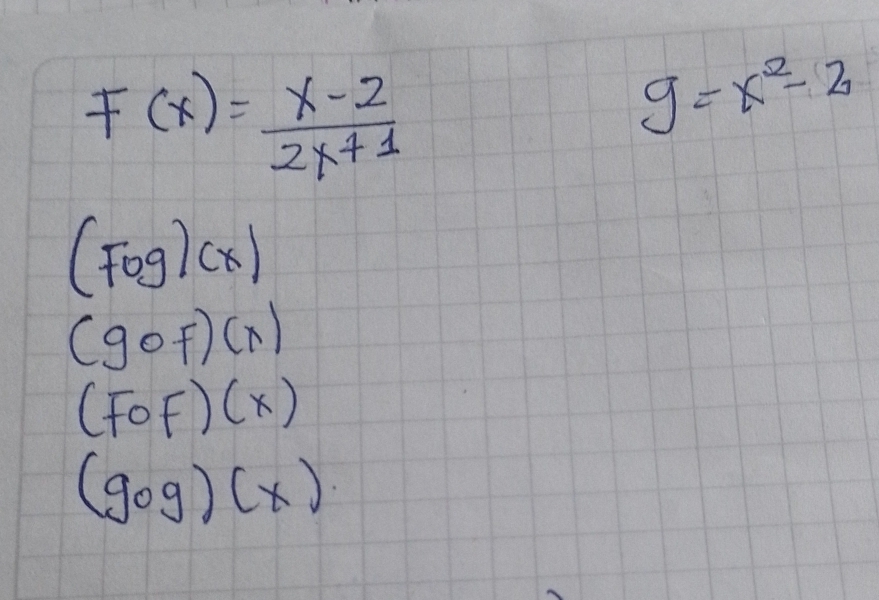 F(x) = x-2 / 2x+1
g = x² - 2
(Fog)(x)
(goF)(x)
(FoF)(x)
(gog)(x).